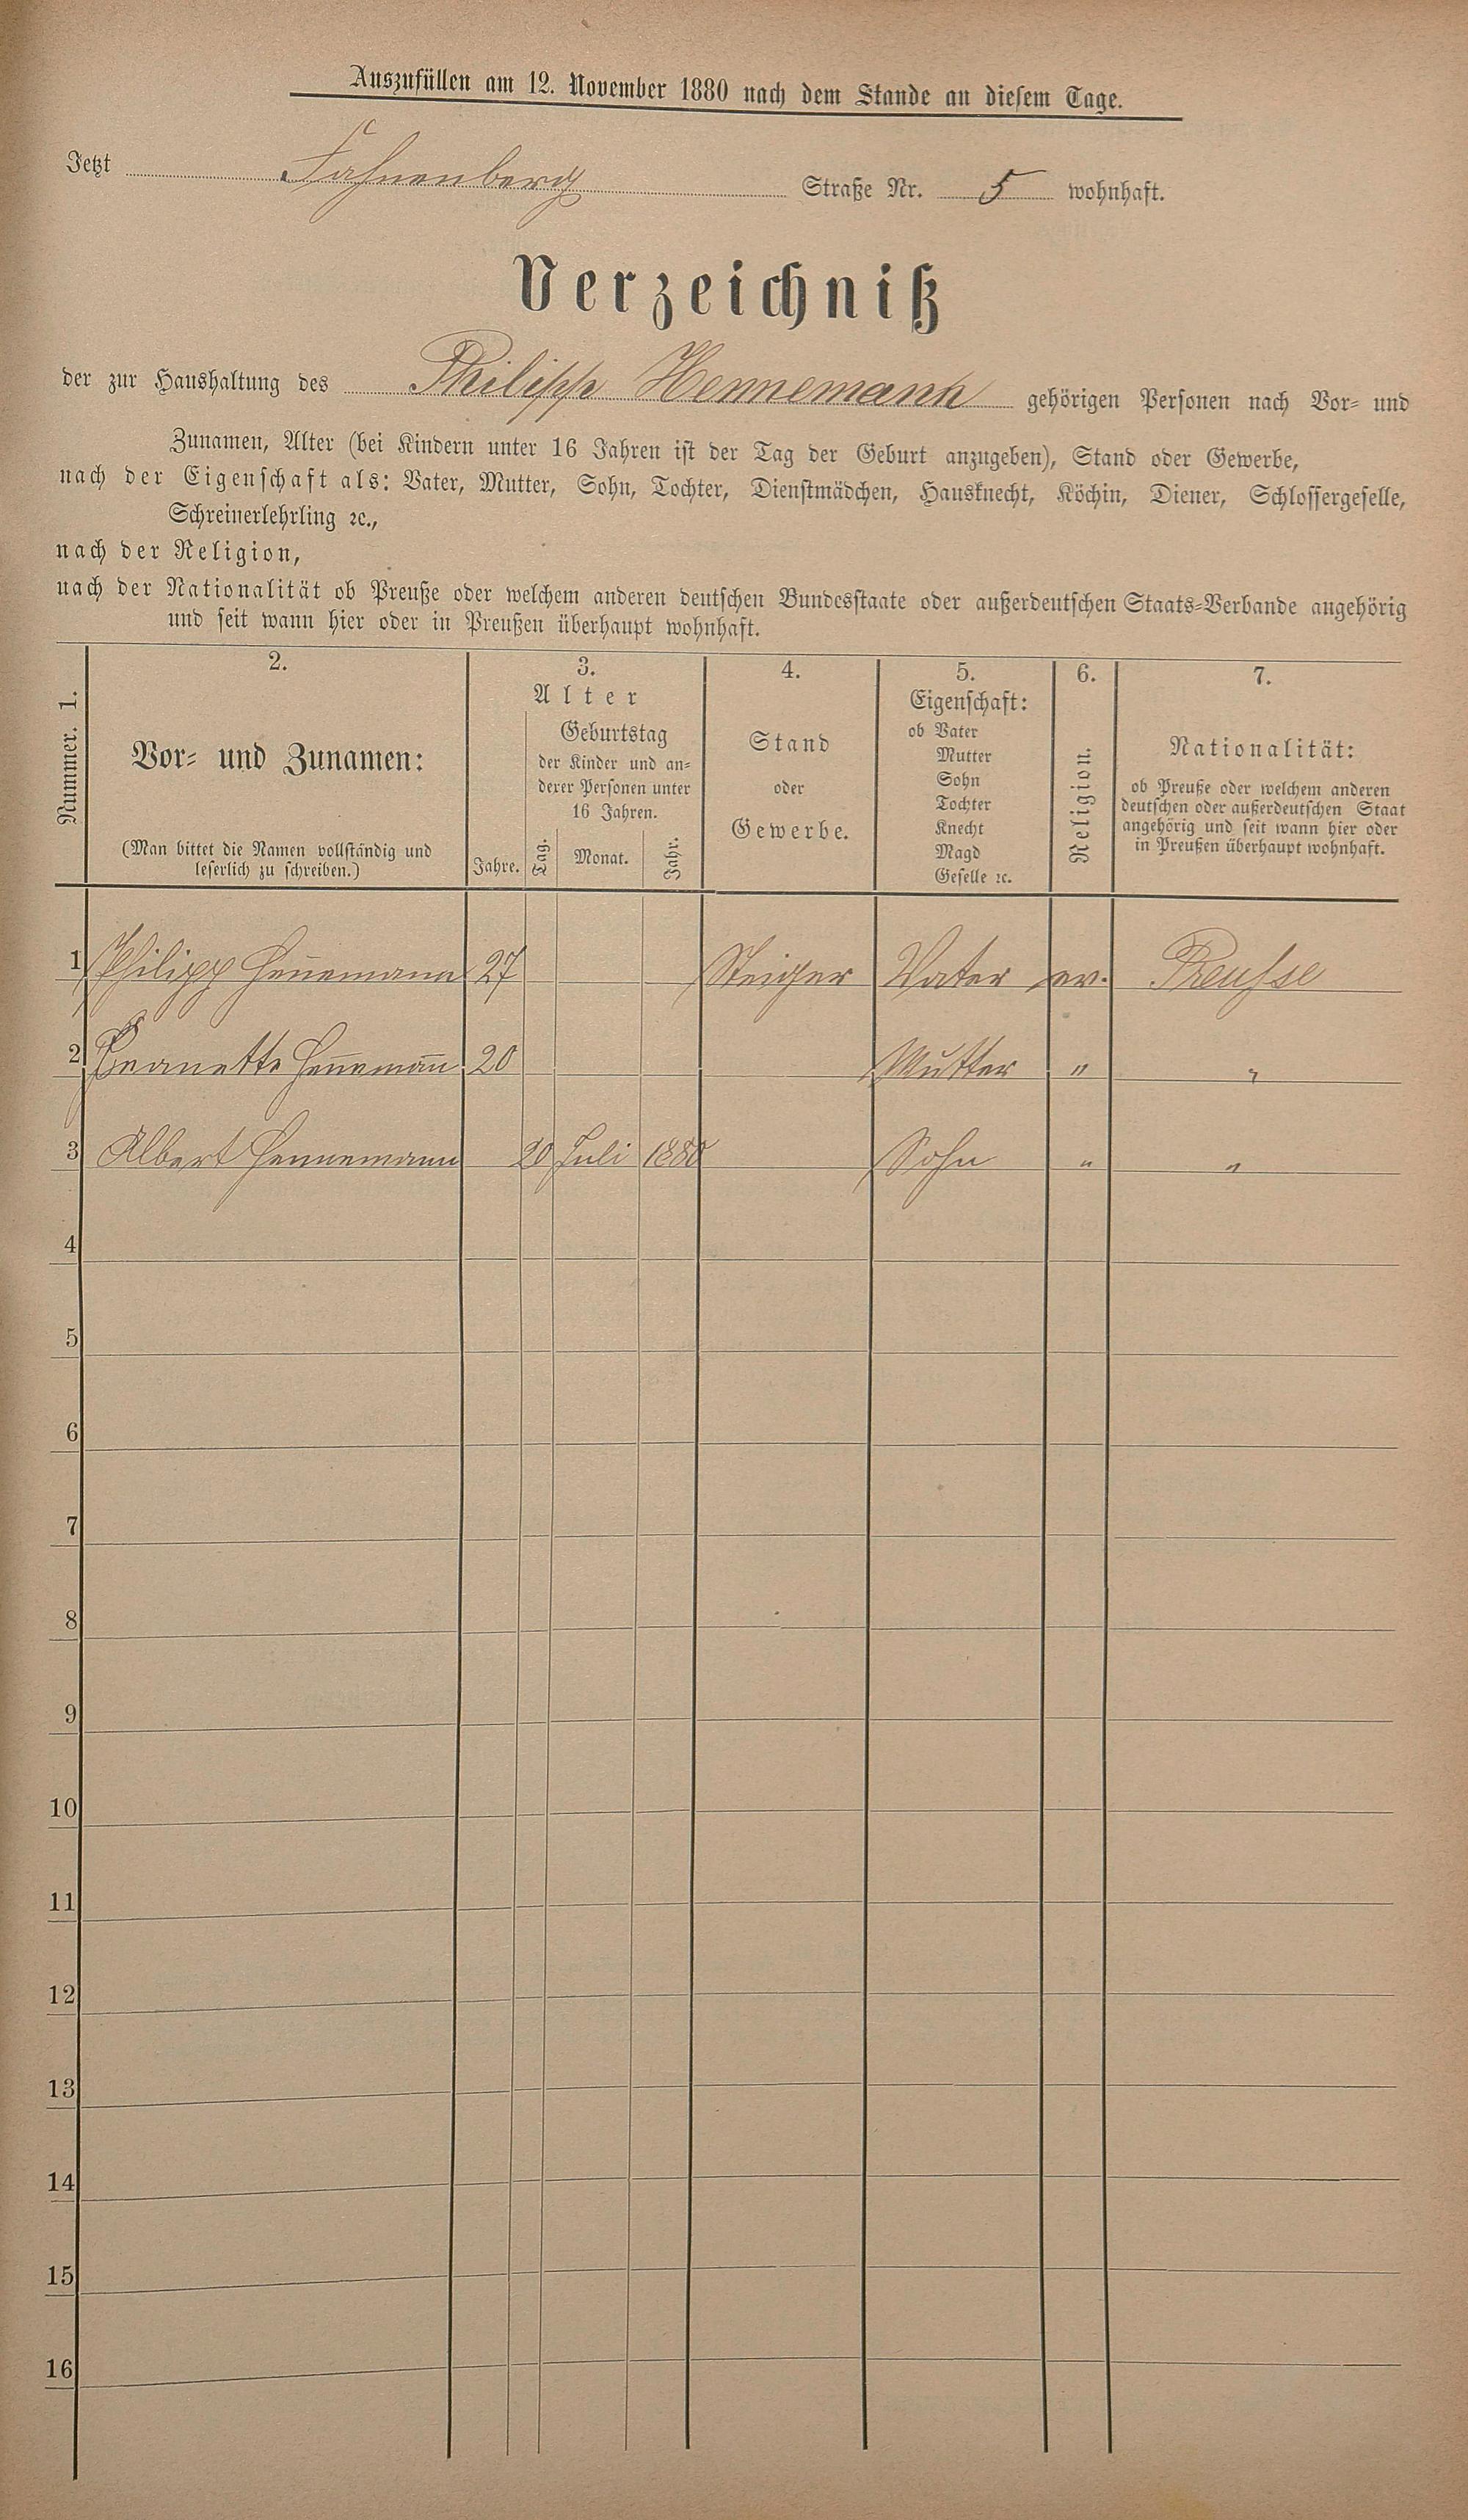 Auszufüllen am 12. November 1880 nach dem Stande an diesem Tage.
Jetzt Fahnenberg Straße Nr. 5 wohnhaft.
Verzeichniß
der zur Haushaltung des Philipp Hennemann gehörigen Personen nach Vor- und
Zunamen, Alter (bei Kindern unter 16 Jahren ist der Tag der Geburt anzugeben), Stand oder Gewerbe,
nach der Eigenschaft als: Vater, Mutter, Sohn, Tochter, Dienstmädchen, Hausknecht, Köchin, Diener, Schlossergeselle,
Schreinerlehrling ꝛc.,
nach der Religion,
nach der Nationalität ob Preuße oder welchem anderen deutschen Bundesstaate oder außerdeutschen Staats-Verbande angehörig
und seit wann hier oder in Preußen überhaupt wohnhaft.
Nummer. 1.
2.
Vor- und Zunamen:
(Man bittet die Namen vollständig und
leserlich zu schreiben.)
3.
Alter
Jahre.
Geburtstag
der Kinder und an-
derer Personen unter
16 Jahren.
Tag. Monat. Jahr.
4.
Stand
oder
Gewerbe.
5.
Eigenschaft:
ob Vater
Mutter
Sohn
Tochter
Knecht
Magd
Geselle ꝛc.
6.
Religion.
7.
Nationalität:
ob Preuße oder welchem anderen
deutschen oder außerdeutschen Staat
angehörig und seit wann hier oder
in Preußen überhaupt wohnhaft.
1 Philipp Hen̅emann 27 Steiger Vater ev. Preusse
2 Jeanette Hen̅eman̅ 20 Mutter " "
3 Albert Hennemann 20 Juli 1880 Sohn " "
4
5
6
7
8
9
10
11
12
13
14
15
16